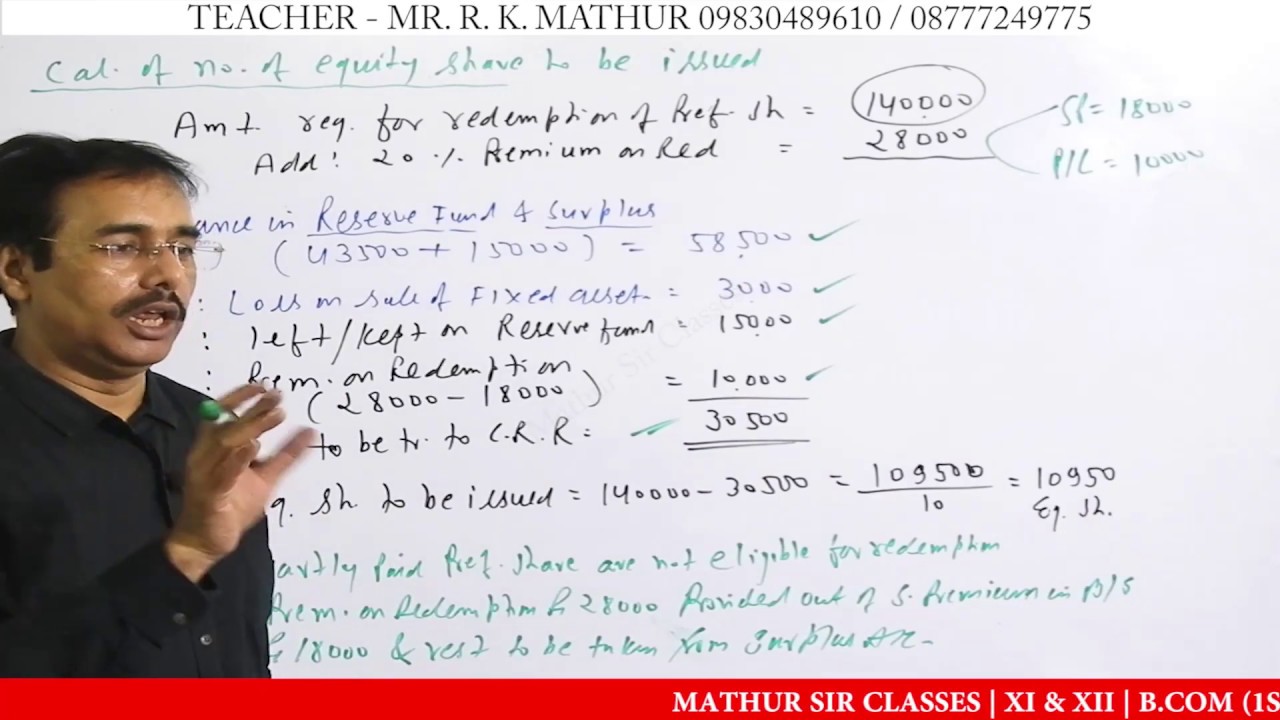 TEACHER - MR. R. K. MATHUR 09830489610 / 08777249775
Cal. of no. of equity share to be issued
Amt. req. for redemption of Pref. sh = 140000
Add: 20 % Premium on Red = 28000
SP = 18000
P/L = 10000
ance in Reserve Fund & Surplus
(43500 + 15000) = 58,500
: Loss on sale of Fixed asset. = 3000
: left/kept on Reserve fund = 15000
: Prem. on Redemption
(28000 - 18000) = 10,000
to be tr. to C.R.R = 30500
q. sh. to be issued = 140000 - 30500 = 109500 / 10 = 10950 Eq. sh.
artly Paid Pref. share are not eligible for redemption
Prem. on Redemption ₹ 28000 Provided out of S. Premium in B/S
₹ 18000 & rest to be taken from Surplus A/c.
Mathur Sir Classes
MATHUR SIR CLASSES | XI & XII | B.COM (1S